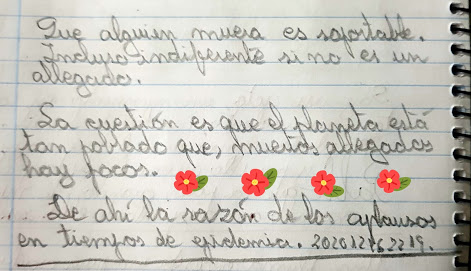 Que alguien muera es soportable.
Incluso indiferente si no es un
allegado.
La cuestión es que el planeta está
tan poblado que, muertos allegados
hay pocos.
De ahí la razón de los aplausos
en tiempos de epidemia.